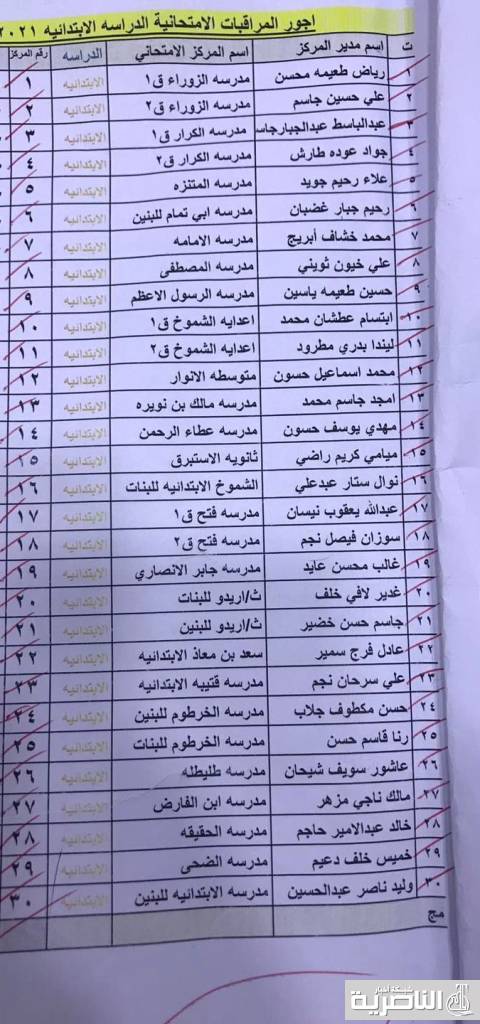 اجور المراقبات الامتحانية الدراسه الابتدائيه ٢٠٢١
ت اسم مدير المركز اسم المركز الامتحاني الدراسه رقم المركز
١ رياض طعيمه محسن مدرسه الزوراء ق١ الابتدائيه ١
٢ علي حسين جاسم مدرسه الزوراء ق٢ الابتدائيه ٢
٣ عبدالباسط عبدالجبارجاس مدرسه الكرار ق١ الابتدائيه ٣
٤ جواد عوده طارش مدرسه الكرار ق٢ الابتدائيه ٤
٥ علاء رحيم جويد مدرسه المتنزه الابتدائيه ٥
٦ رحيم جبار غضبان مدرسه ابي تمام للبنين الابتدائيه ٦
٧ محمد خشاف أبريج مدرسه الامامه الابتدائيه ٧
٨ علي خيون ثويني مدرسه المصطفى الابتدائيه ٨
٩ حسين طعيمه ياسين مدرسه الرسول الاعظم الابتدائيه ٩
١٠ ابتسام عطشان محمد اعدايه الشموخ ق١ الابتدائيه ١٠
١١ ليندا بدري مطرود اعدايه الشموخ ق٢ الابتدائيه ١١
١٢ محمد اسماعيل حسون متوسطه الانوار الابتدائيه ١٢
١٣ امجد جاسم محمد مدرسه مالك بن نويره الابتدائيه ١٣
١٤ مهدي يوسف حسون مدرسه عطاء الرحمن الابتدائيه ١٤
١٥ ميامي كريم راضي ثانويه الاستبرق الابتدائيه ١٥
١٦ نوال ستار عبدعلي الشموخ الابتدائيه للبنات الابتدائيه ١٦
١٧ عبدالله يعقوب نيسان مدرسه فتح ق١ الابتدائيه ١٧
١٨ سوزان فيصل نجم مدرسه فتح ق٢ الابتدائيه ١٨
١٩ غالب محسن عايد مدرسه جابر الانصاري الابتدائيه ١٩
٢٠ غدير لافي خلف ث/اريدو للبنات الابتدائيه ٢٠
٢١ جاسم حسن خضير ث/اريدو للبنين الابتدائيه ٢١
٢٢ عادل فرج سمير سعد بن معاذ الابتدائيه الابتدائيه ٢٢
٢٣ علي سرحان نجم مدرسه قتيبه الابتدائيه الابتدائيه ٢٣
٢٤ حسن مكطوف جلاب مدرسه الخرطوم للبنين الابتدائيه ٢٤
٢٥ رنا قاسم حسن مدرسه الخرطوم للبنات الابتدائيه ٢٥
٢٦ عاشور سويف شيحان مدرسه طليطله الابتدائيه ٢٦
٢٧ مالك ناجي مزهر مدرسه ابن الفارض الابتدائيه ٢٧
٢٨ خالد عبدالامير حاجم مدرسه الحقيقه الابتدائيه ٢٨
٢٩ خميس خلف دعيم مدرسه الضحى الابتدائيه ٢٩
٣٠ وليد ناصر عبدالحسين مدرسه الابتدائيه للبنين الابتدائيه ٣٠
مج
شبكة أخبار
الناصرية